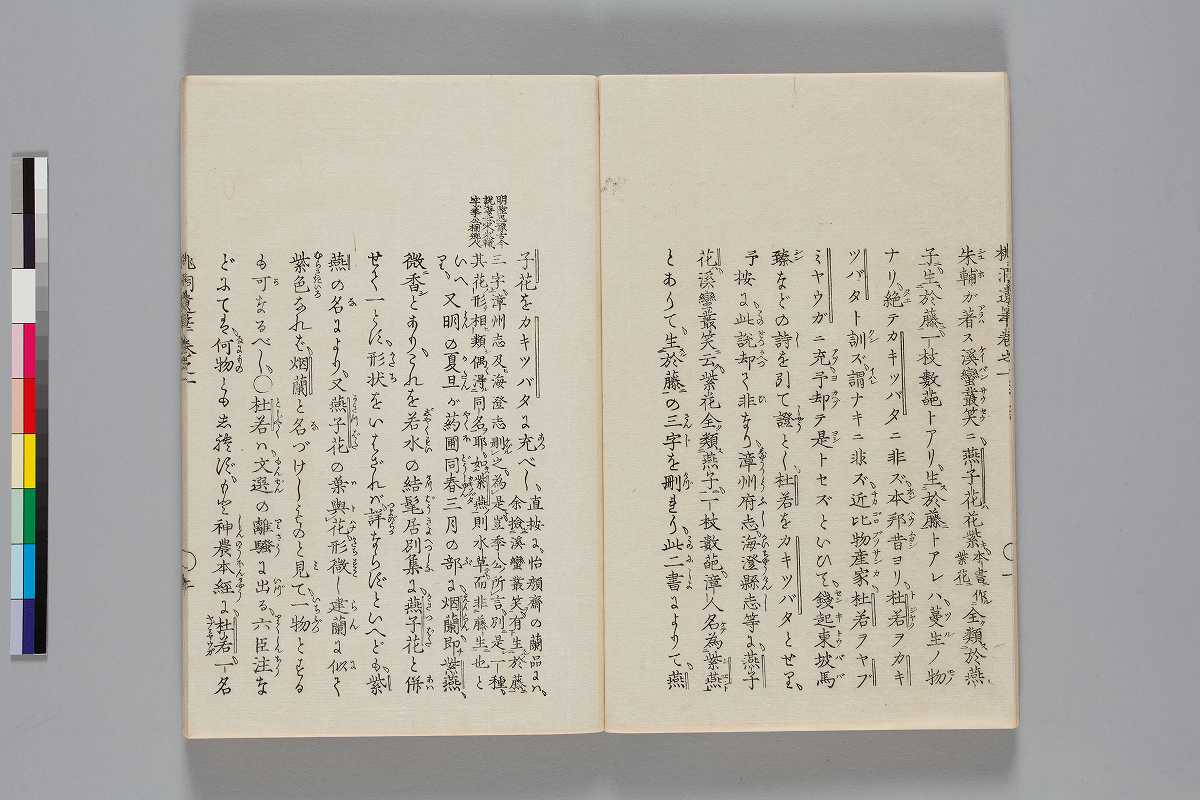 桃洞遺筆巻之一
朱輔ガ著ス溪蠻叢笑ニ燕子花花紫本書作紫花全類於燕
子生於藤一枝數葩トアリ生於藤トアレハ蔓生ノ物
ナリ絶テカキツバタニ非ズ本邦昔ヨリ杜若ヲカキ
ツバタト訓ズ謂ナキニ非ズ近比物産家杜若ヲヤブ
ミヤウガニ充予却テ是トセズといひて錢起東坡馬
臻などの詩を引て證とし杜若をカキツバタとせり
予按に此説却て非なり漳州府志海澄縣志等に燕子
花溪蠻叢笑云紫花全類燕子一枝數葩漳人名為紫燕
とありて生於藤の三字を刪れり此二書によりて燕
子花をカキツバタに充べし直按に怡顔齋の蘭品には
余撿溪蠻叢笑有生於藤
三字漳州志及海澄志刪之為是豈季公所言別是一種
其花形相類偶得同名耶如紫燕則水草而非藤生也と
いへり又明の夏旦が葯圃同春三月の部に烟蘭即紫燕
微香とありこれを若水の結髦居別集に燕子花と併
せて一とす形状をいはざれバ詳ならずといへども紫
燕の名により又燕子花の葉與花形微し建蘭に似て
紫色なれば烟蘭と名づけしものと見て一物とする
も可なるべし〇杜若ハ文選の離騷に出る六臣注な
どにても何物とも志れず神農本經に杜若一名
桃洞遺筆巻之一